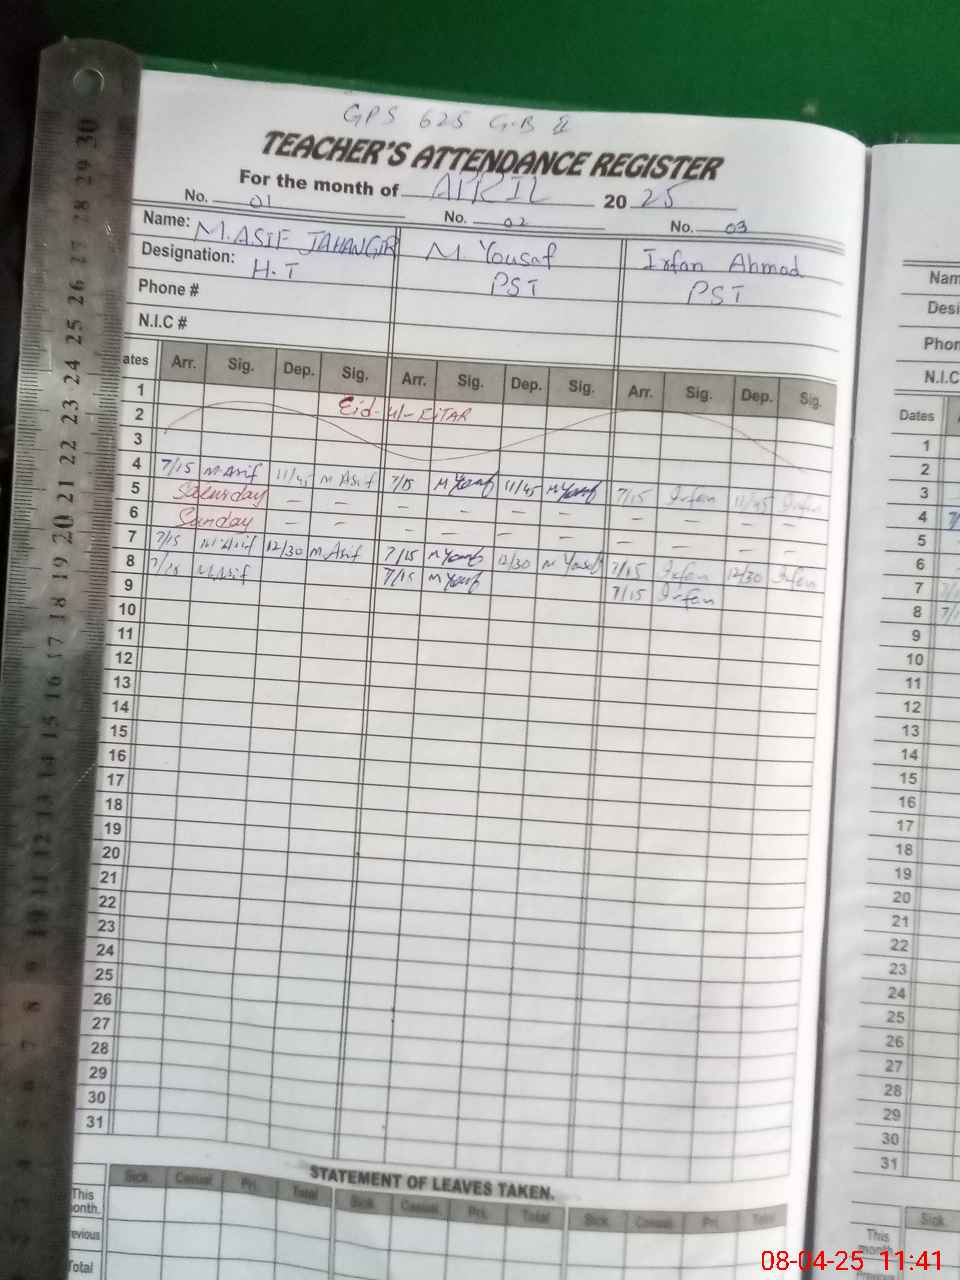 GPS 625 G.B II
TEACHER'S ATTENDANCE REGISTER
For the month of APRIL 2025
No. 01 No. 02 No. 03
Name: M. ASIF JAHANGIR M. Yousaf Irfan Ahmad
Designation: H.T PST PST
Phone #
N.I.C #
ates Arr. Sig. Dep. Sig. Arr. Sig. Dep. Sig. Arr. Sig. Dep. Sig.
1
2 Eid-ul-FITAR
3
4 7/15 M Asif 11/45 M Asif 7/15 M Yousaf 11/45 M Yousaf 7/15 Irfan 11/45 Irfan
5 Saturday – – – – – – – –
6 Sunday – – – – – – – –
7 7/15 M Asif 12/30 M Asif 7/15 M Yousaf 12/30 M Yousaf 7/15 Irfan 12/30 Irfan
8 7/15 M Asif 7/15 M Yousaf 7/15 Irfan
9
10
11
12
13
14
15
16
17
18
19
20
21
22
23
24
25
26
27
28
29
30
31
STATEMENT OF LEAVES TAKEN.
Sick. Casual. Pri. Total Sick. Casual. Pri. Total Sick. Casual. Pri. Total
This
onth.
evious
Total
Nam
Desi
Phon
N.I.C
Dates
1
2
3
4 7/
5
6
7 7/
8 7/
9
10
11
12
13
14
15
16
17
18
19
20
21
22
23
24
25
26
27
28
29
30
31
Sick
This
month.
30
29
28
27
26
25
24
23
22
21
20
19
18
17
16
15
14
13
12
11
10
9
8
7
08-04-25 11:41